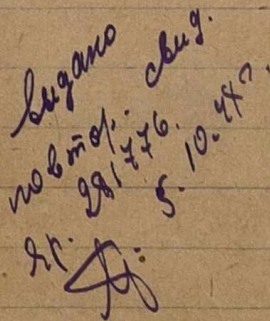 выдано
повтор. свид.
яр. 281776.
5. 10. 44г.